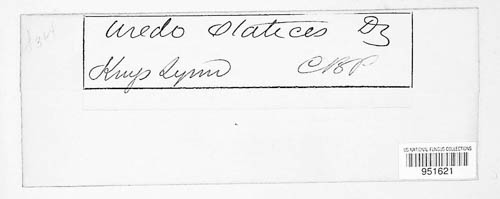 Uredo Statices Dz
Kings Lynn CBP
US NATIONAL FUNGUS COLLECTIONS
951621